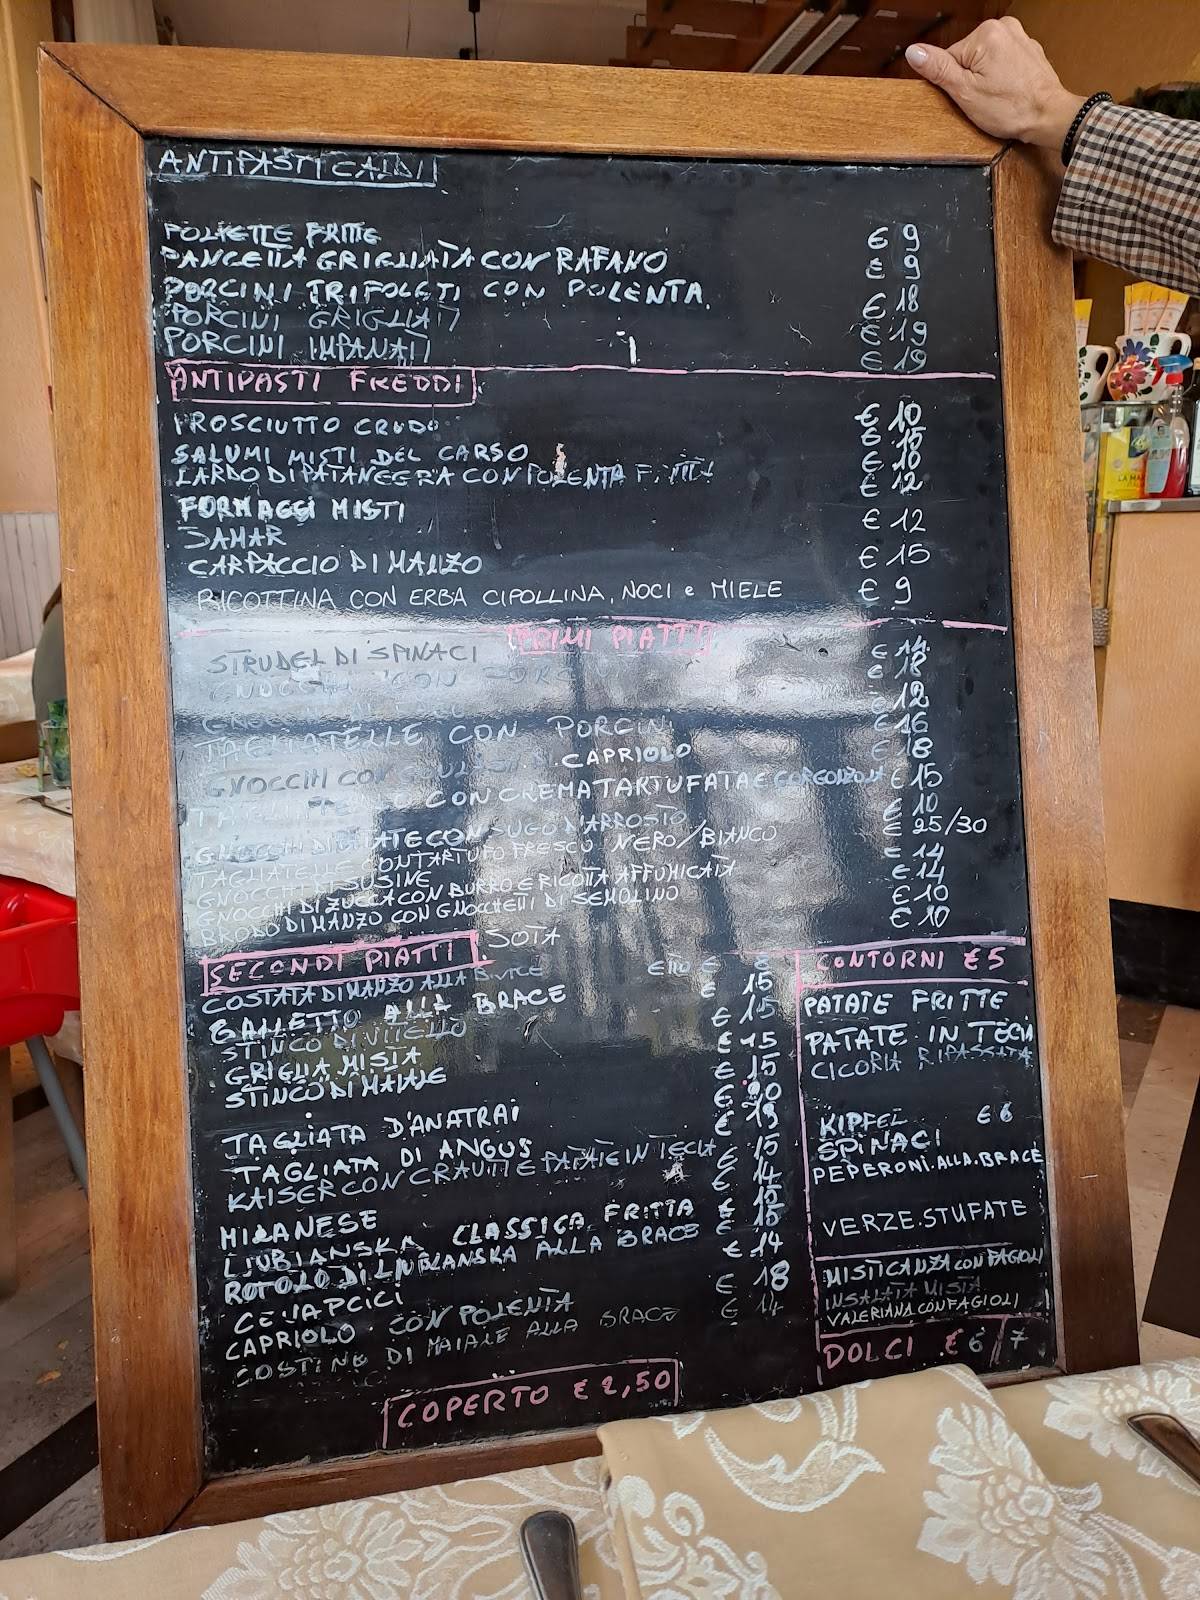 ANTIPASTI CALDI
POLPETTE FRITTE € 9
PANCETTA GRIGLIATA CON RAFANO € 9
PORCINI TRIFOLATI CON POLENTA. € 18
PORCINI GRIGLIATI € 19
PORCINI IMPANATI € 19
ANTIPASTI FREDDI
PROSCIUTTO CRUDO € 10
SALUMI MISTI DEL CARSO € 15
LARDO DI PATANEGRA CON POLENTA € 10
FORMAGGI MISTI € 12
JAMAR € 12
CARPACCIO DI MANZO € 15
RICOTTINA CON ERBA CIPOLLINA, NOCI e MIELE € 9
PRIMI PIATTI
STRUDEL DI SPINACI € 14
GNOCCHI CON PORCINI € 18
€ 12
TAGLIATELLE CON PORCINI € 16
GNOCCHI CON CAPRIOLO € 18
CON CREMA TARTUFATA E GORGONZOLA € 15
GNOCCHI DI PATATE CON SUGO D'ARROSTO € 10
TAGLIATELLE CON TARTUFO FRESCO NERO/BIANCO € 25/30
GNOCCHI DI SUSINE € 14
GNOCCHI DI ZUCCA CON BURRO E RICOTTA AFFUMICATA € 14
BRODO DI MANZO CON GNOCCHETTI DI SEMOLINO € 10
JOTA € 10
SECONDI PIATTI
COSTATA DI MANZO ALLA BRACE ETTO € 8
GALLETTO ALLA BRACE € 15
STINCO DI VITELLO 15
GRIGLIA MISTA € 15
STINCO DI MAIALE € 15
TAGLIATA D'ANATRA € 20
TAGLIATA DI ANGUS € 19
KAISER CON CRAUTI E PATATE IN TECIA € 15
MILANESE € 14
LJUBIANSKA CLASSICA FRITTA € 15
ROTOLO DI LJUBLANSKA ALLA BRACE € 15
CEVAPCICI € 14
CAPRIOLO CON POLENTA € 18
COSTINE DI MAIALE ALLA BRACE € 14
COPERTO € 2,50
CONTORNI € 5
PATATE FRITTE
PATATE IN TECIA
CICORIA RIPASSATA
KIPFEL € 6
SPINACI
PEPERONI.ALLA.BRACE
VERZE.STUFATE
MISTICANZA CON FAGIOLI
INSALATA MISTA
VALERIANA CON FAGIOLI
DOLCI € 6 7